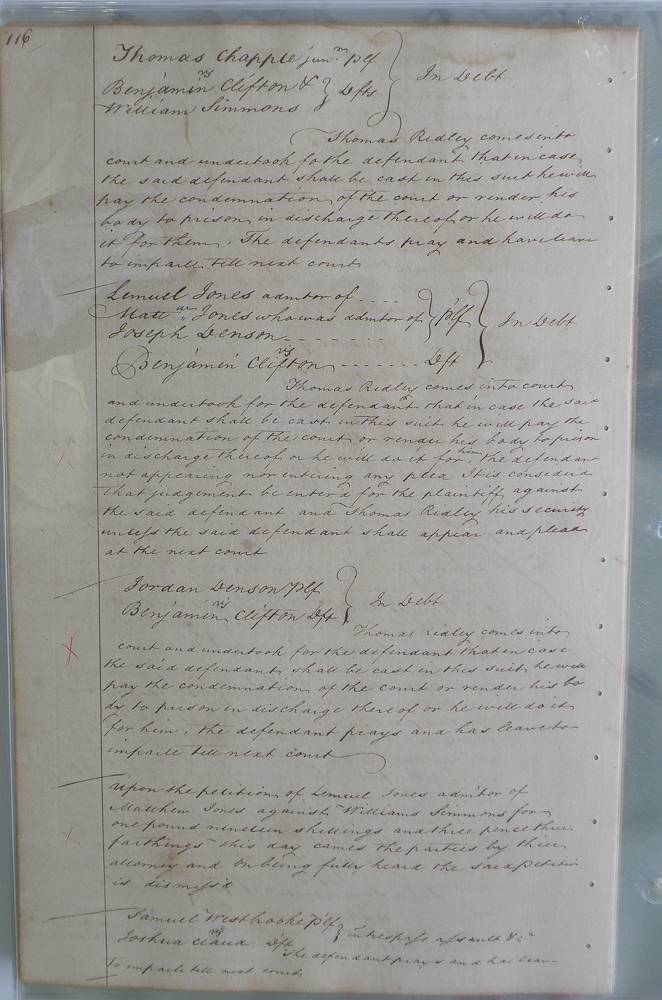 116
Thomas Chapple junr. Plf
vs
Benjamin Clifton & } Dfts } In Debt
William Simmons
Thomas Ridley comes into
court and undertook fo the defendant that in case
the said defendant shall be cast in this suit he will
pay the condemnation of the court or render his
body to prison in discharge thereof or he will do
it for them, The defendants pray and have leave
to imparle till next court
Lemuel Jones admtor of ....
Mattw. Jones who was admtor of } Plf } In Debt
Joseph Denson - - - - - -
vs
Benjamin Clifton - - - - - - - Dft
Thomas Ridley comes into court
and undertook for the defendant that in case the said
defendant shall be cast in this suit he will pay the
condemnation of the court or render his body to prison
in discharge thereof or he will do it for him, the defendant
not appearing nor entiring any plea It is considerd
that judgement be enter'd for the plaintiff against
the said defendant and Thomas Ridley his security
unless the said defendant shall appear and plead
at the next court
Jordan Denson Plf
vs } In Debt
Benjamin Clifton Dft
Thomas Ridley comes into
court and undertook for the defendant that in case
the said defendant shall be cast in this suit he will
pay the condemnation of the court or render his bo
dy to prison in discharge thereof or he will do it
for him, the defendant prays and has leave to
imparle till next court
Upon the petition of Lemuel Jones admtor of
Matthew Jones against Williams Simmons for
one pound nineteen shillings and three pence three
farthings this day cames the parties by their
attorney and on being fully heard the said petition
is dismiss'd
Samuel Westbrooke Plf
vs } in trespass assault &ca
Joshua Claud Dft
The defendant prays and has leave
to imparle till next court